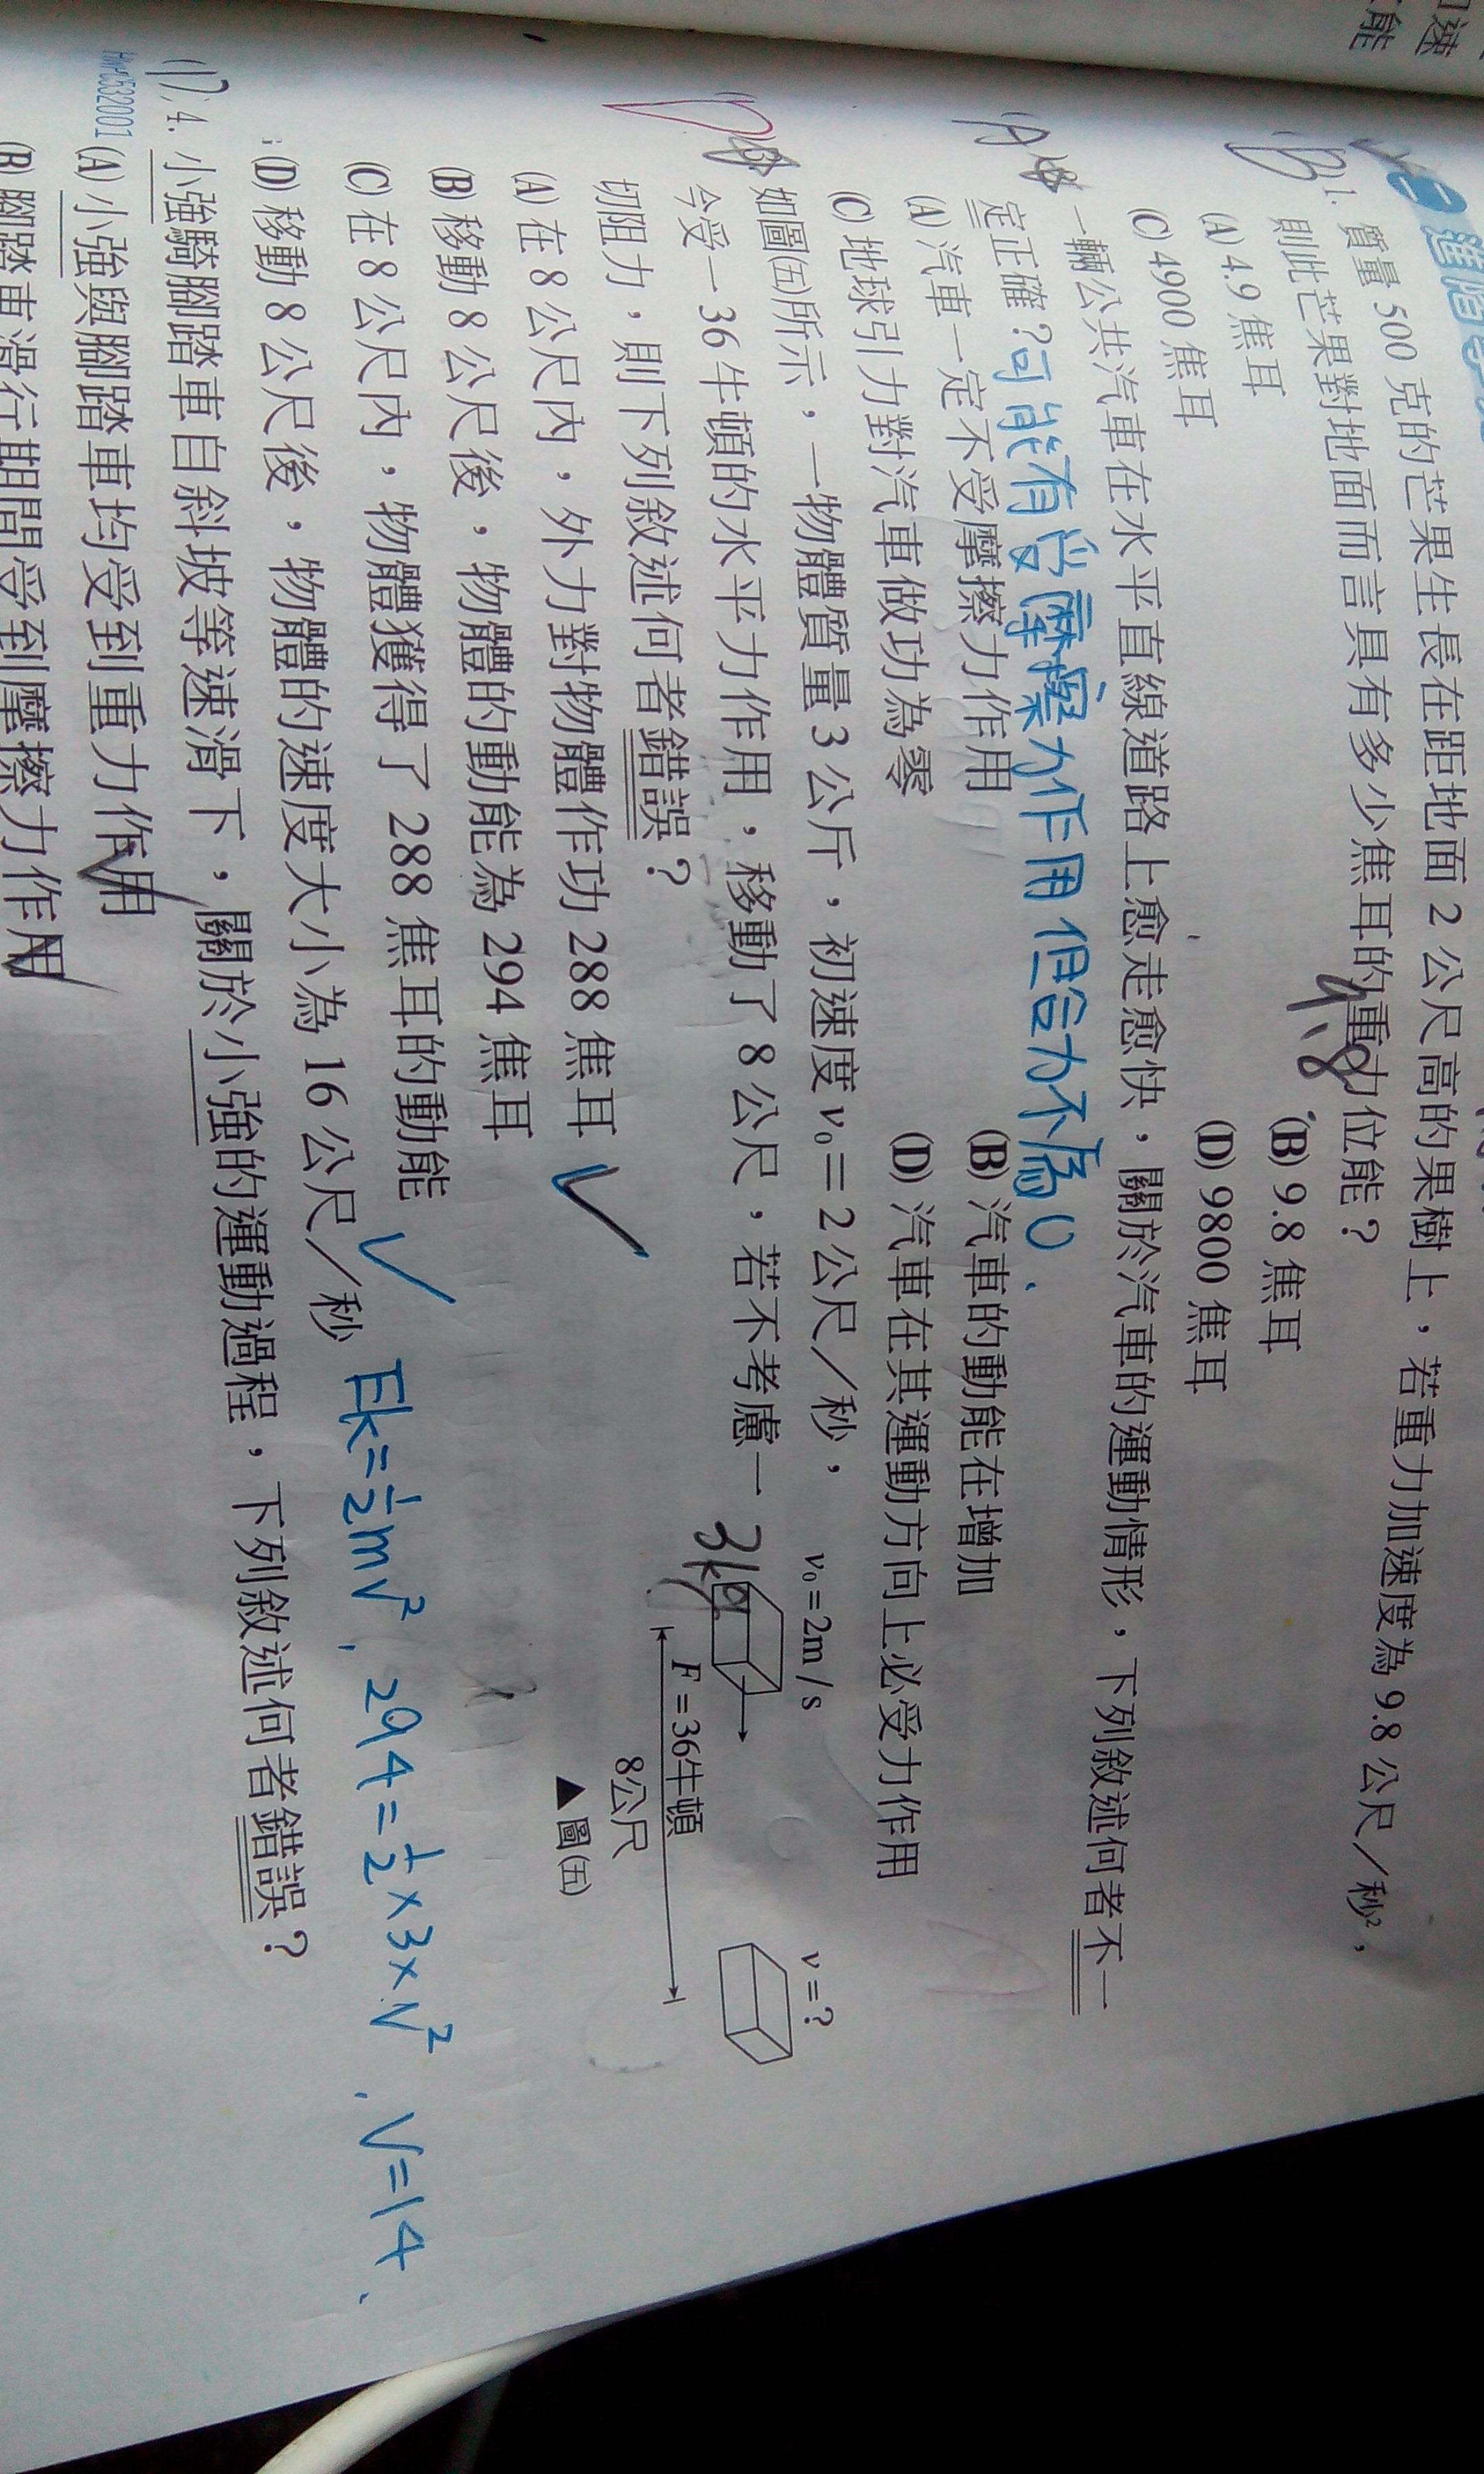 口速
能
一 進階
B 1. 質量 500 克的芒果生長在距地面 2 公尺高的果樹上，若重力加速度為 9.8 公尺／秒²，
則此芒果對地面而言具有多少焦耳的重力位能？
9.8
(A) 4.9 焦耳 (B) 9.8 焦耳
(C) 4900 焦耳 (D) 9800 焦耳
A 一輛公共汽車在水平直線道路上愈走愈快，關於汽車的運動情形，下列敘述何者不一
定正確？可能有受摩擦力作用但合力不為0.
(A) 汽車一定不受摩擦力作用 (B) 汽車的動能在增加
(C) 地球引力對汽車做功為零 (D) 汽車在其運動方向上必受力作用
D 如圖(五)所示，一物體質量 3 公斤，初速度 v₀＝2 公尺／秒，
今受一 36 牛頓的水平力作用，移動了 8 公尺，若不考慮一
切阻力，則下列敘述何者錯誤？
v₀=2m/s v=?
3kg
F=36牛頓
8公尺
▲圖(五)
(A) 在 8 公尺內，外力對物體作功 288 焦耳 ✓
(B) 移動 8 公尺後，物體的動能為 294 焦耳
(C) 在 8 公尺內，物體獲得了 288 焦耳的動能 ✓
(D) 移動 8 公尺後，物體的速度大小為 16 公尺／秒 Ek=½mv², 294=½×3×v², v=14,
4. 小強騎腳踏車自斜坡等速滑下，關於小強的運動過程，下列敘述何者錯誤？
(A) 小強與腳踏車均受到重力作用 ✓
(B) 腳踏車滑行期間受到摩擦力作用 ✓